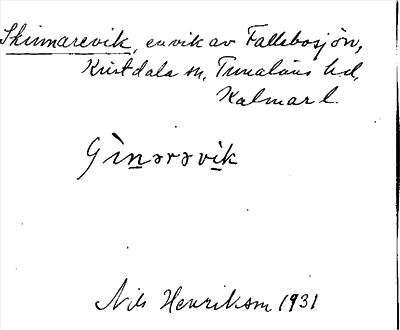 Skinnarevik, en vik av Fallebosjön,
Kristdala sn, Tunaläns hd,
Kalmar l.
Gìnərəvik
Nils Henrikson 1931